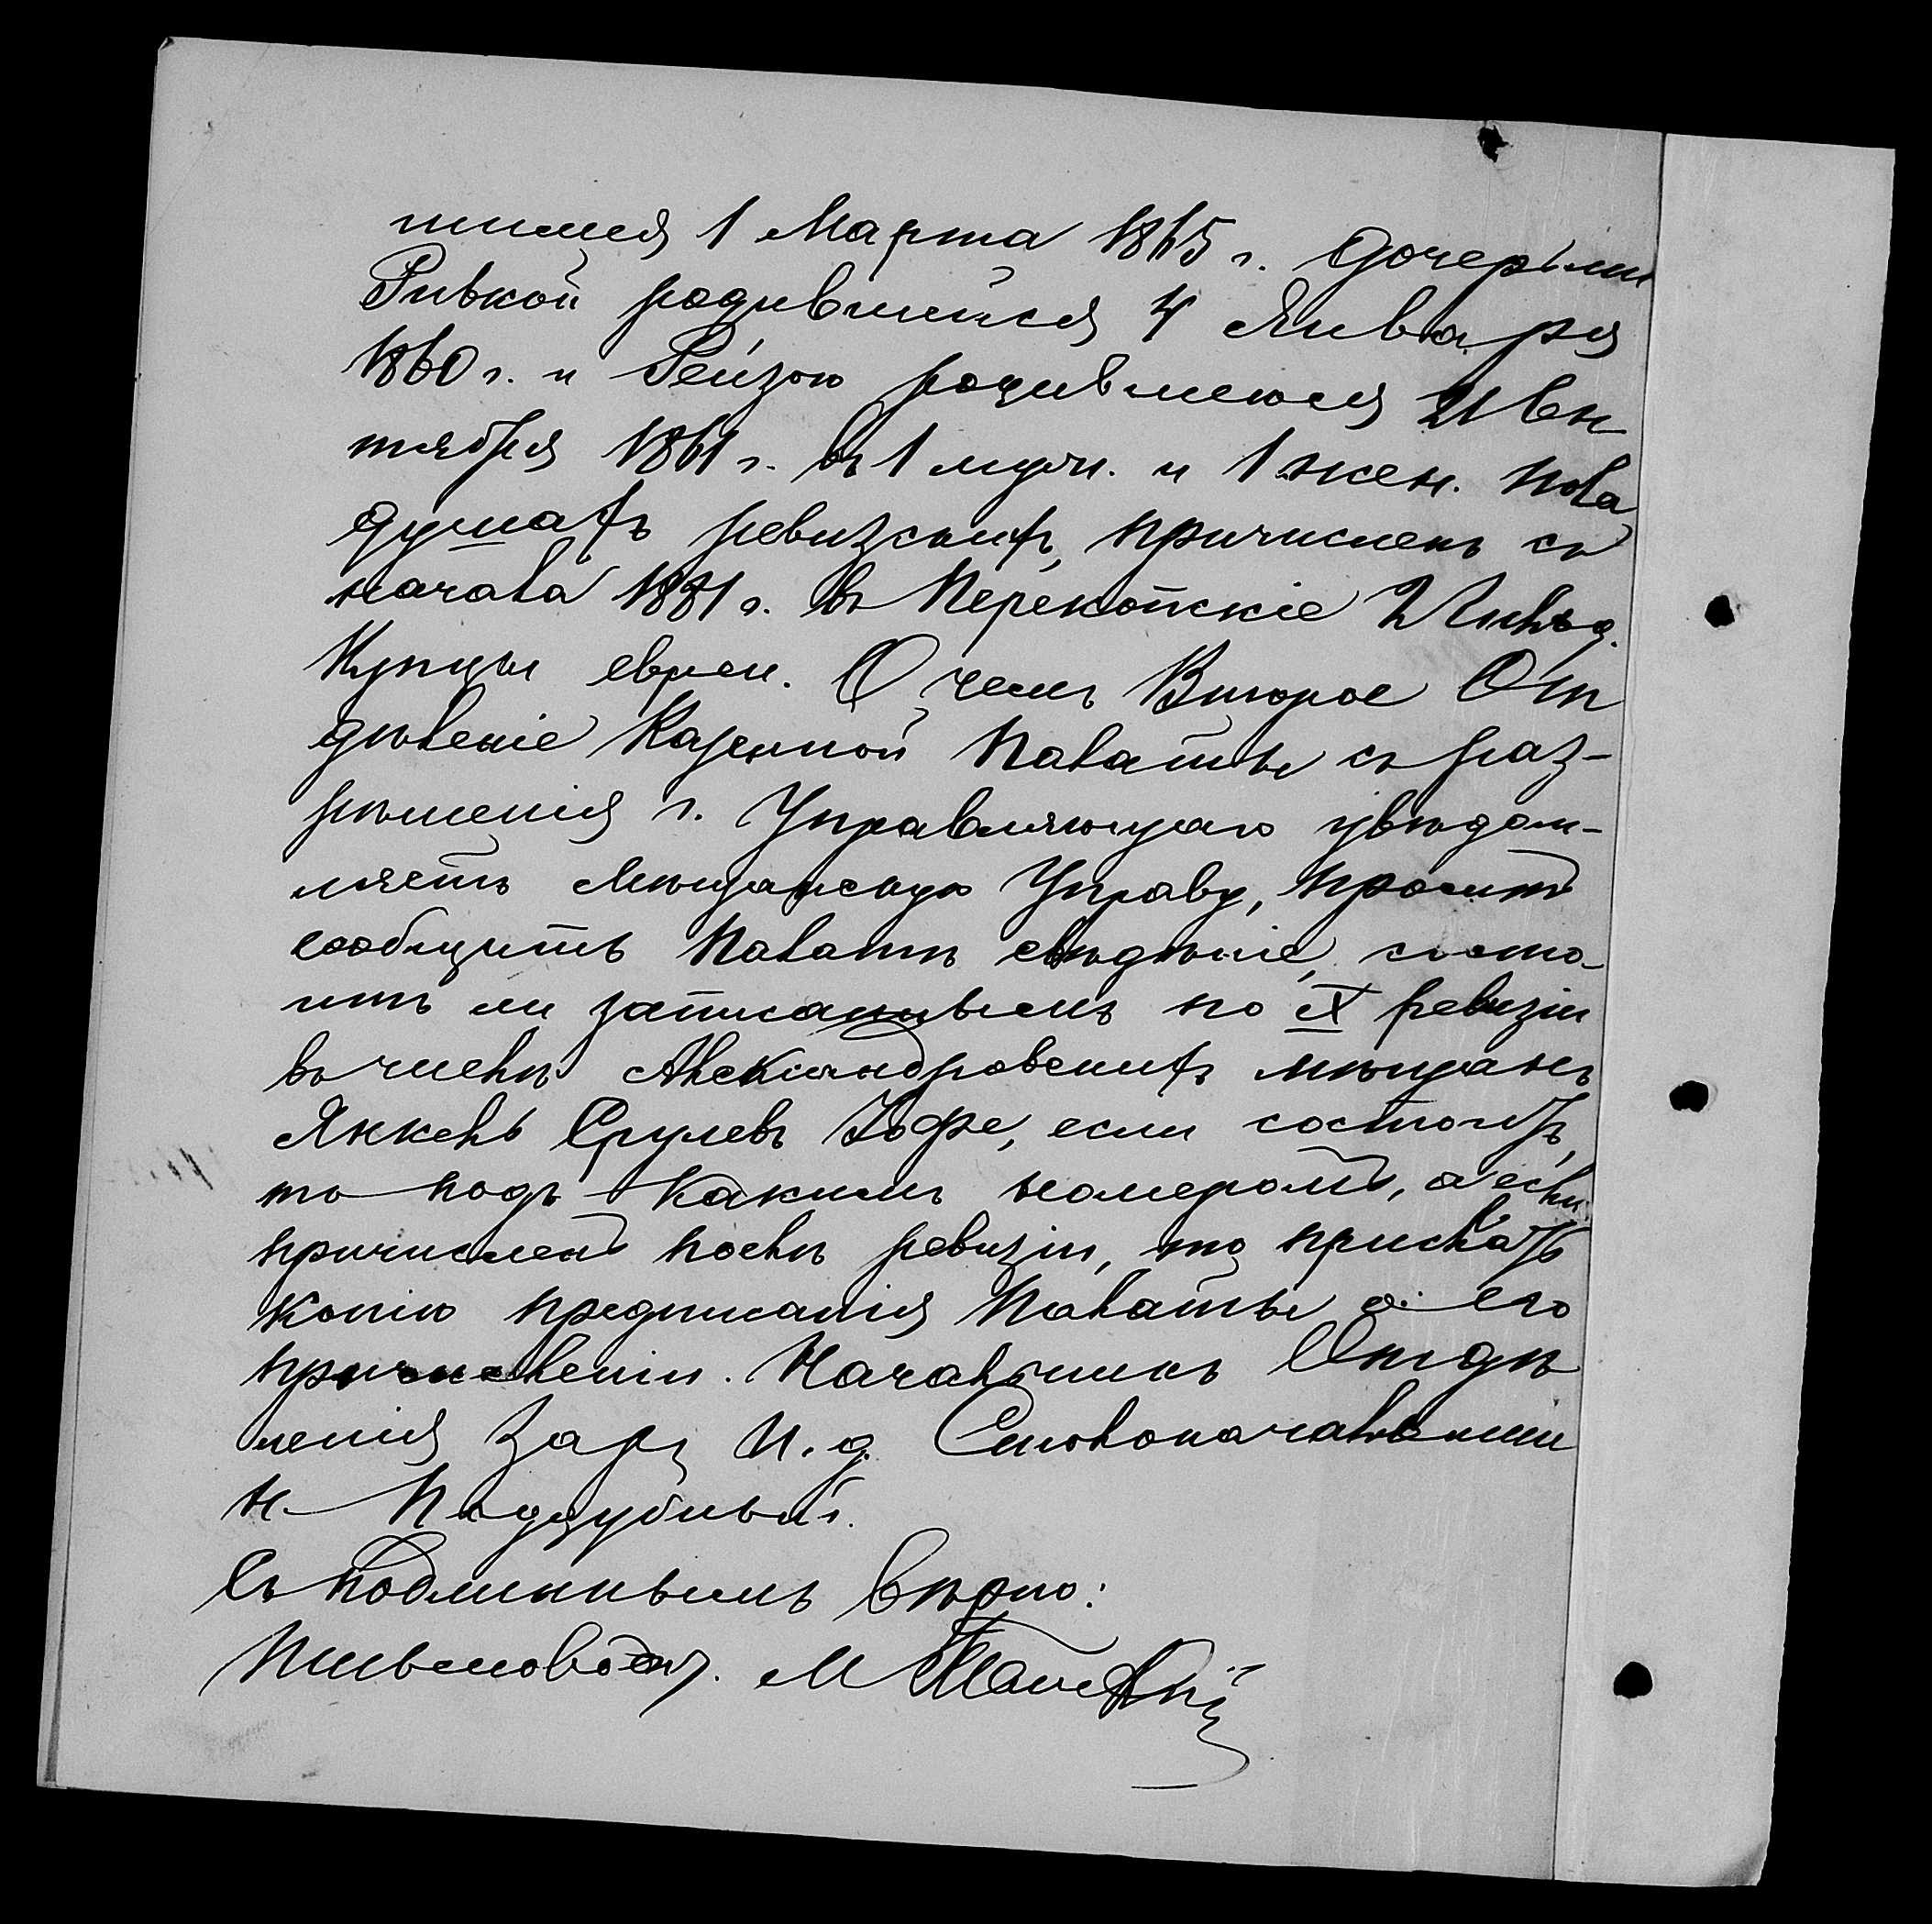 шимся 1 Марта 1865 г. дочерьми
Ривкой родившейся 4 Января
1860 г. и Рейзою родившеюся 21 Сен
тября 1861 г. въ 1 муж. и 1 жен. пола
душахъ ревизскихъ, причисленъ съ
начала 1881 г. въ Перекопскіе 2 Гильд.
Купцы евреи. О чемъ Второе От
дѣленіе Казенной Палаты съ раз-
рѣшенія г. Управляющаго увѣдом-
ляетъ Мѣщанскую Управу, проситъ
сообщить Палатѣ свѣдѣніе, состо
итъ ли записаннымъ по IX ревизіи
въ числѣ Александровскихъ мѣщанъ
Янкель Срулевъ Іофе, если состоитъ,
то подъ какимъ номеромъ, а если
причисленъ послѣ ревизіи, то прислать
копію предписанія Палаты о его
причисленіи. Начальникъ Отдѣ
ленія И. д. Столоначальни
к Поддубный.
Съ подлиннымъ вѣрно:
Письмовод. М